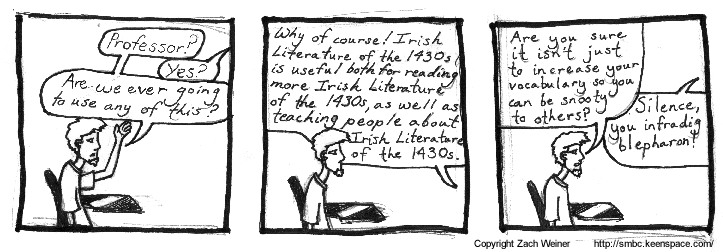 Professor?
Yes?
Are we ever going
to use any of this?
Why of course! Irish
Literature of the 1430s
is useful both for reading
more Irish Literature
of the 1430s, as well as
teaching people about
Irish Literature
of the 1430s.
Are you sure
it isn't just
to increase your
vocabulary so you
can be snooty
to others?
Silence,
you infradig
blepharon!
Copyright Zach Weiner http://smbc.keenspace.com/